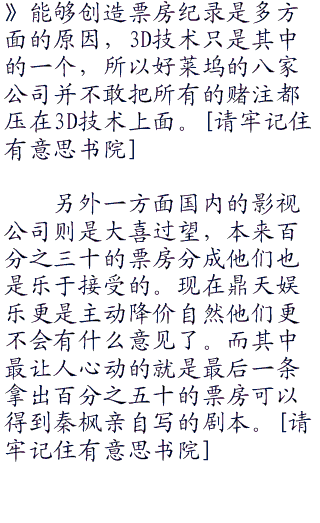 》能够创造票房纪录是多方
面的原因，3D技术只是其中
的一个，所以好莱坞的八家
公司并不敢把所有的赌注都
压在3D技术上面。[请牢记住
有意思书院]
另外一方面国内的影视
公司则是大喜过望，本来百
分之三十的票房分成他们也
是乐于接受的。现在鼎天娱
乐更是主动降价自然他们更
不会有什么意见了。而其中
最让人心动的就是最后一条
拿出百分之五十的票房可以
得到秦枫亲自写的剧本。[请
牢记住有意思书院]